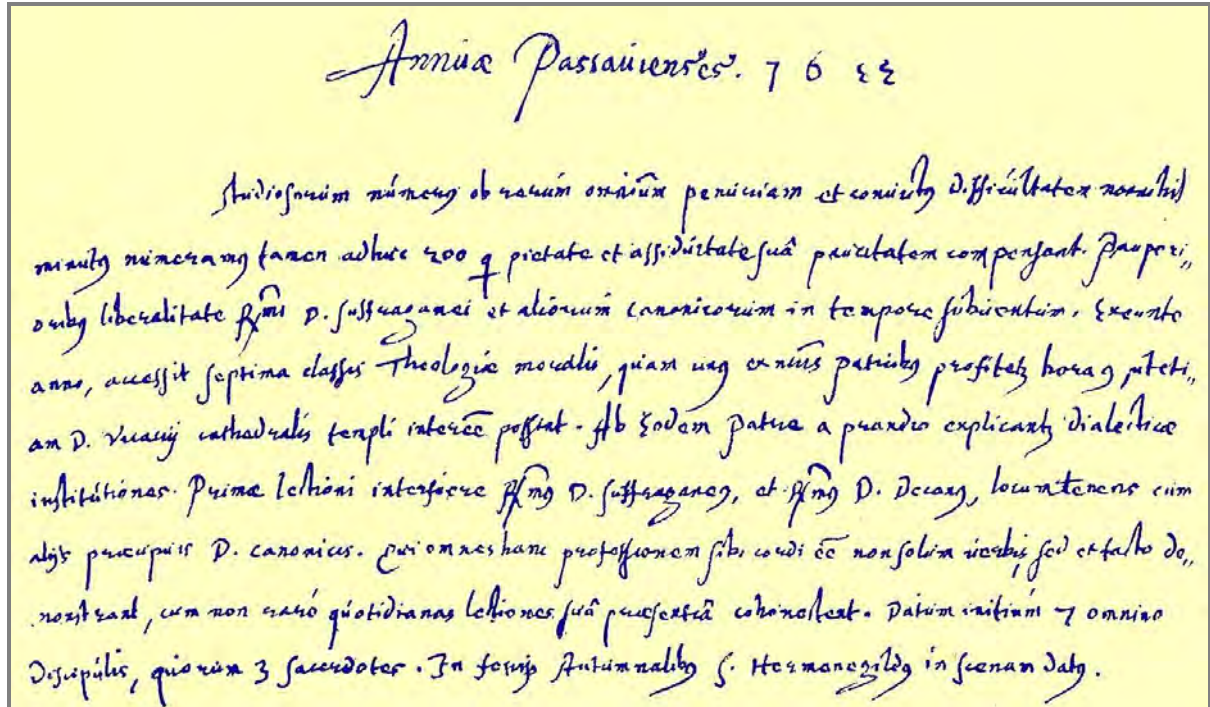 Annuæ Passavienses. 1622
Studiosorum numerus ob rerum omnium penuriam et convictus difficultatem nonnihil
minutus numeramus tamen adhuc 200 q pietate et assiduitate suâ paucitatem compensant. Pauperi,,
oribus liberalitate Rmi D. Suffraganei et aliorum canonicorum in tempore subventum. Exeunte
anno, accessit septima classis Theologiæ moralis, quam unus ex nris patribus profitetur hora 9, ut eti,,
am D. Vicarij cathedralis templi interee possint. Ab Eodem Patre a prandio explicantur dialecticæ
institutiones. Primæ lectioni interfuere Rmus D. Suffraganeus, et Rmus D. Decanus, locumtenens cum
alijs præcipuis D. canonicis. Qui omnes hanc professionem sibi cordi ee non solum verbis, sed et facto de,,
monstrant, cum non raro quotidianas lectiones suâ præsentiâ cohonestent. Datum initium 7 omnino
discipulis, quorum 3 sacerdotes. In ferijs Autumnalibus S. Hermenegildus in scenam datus.